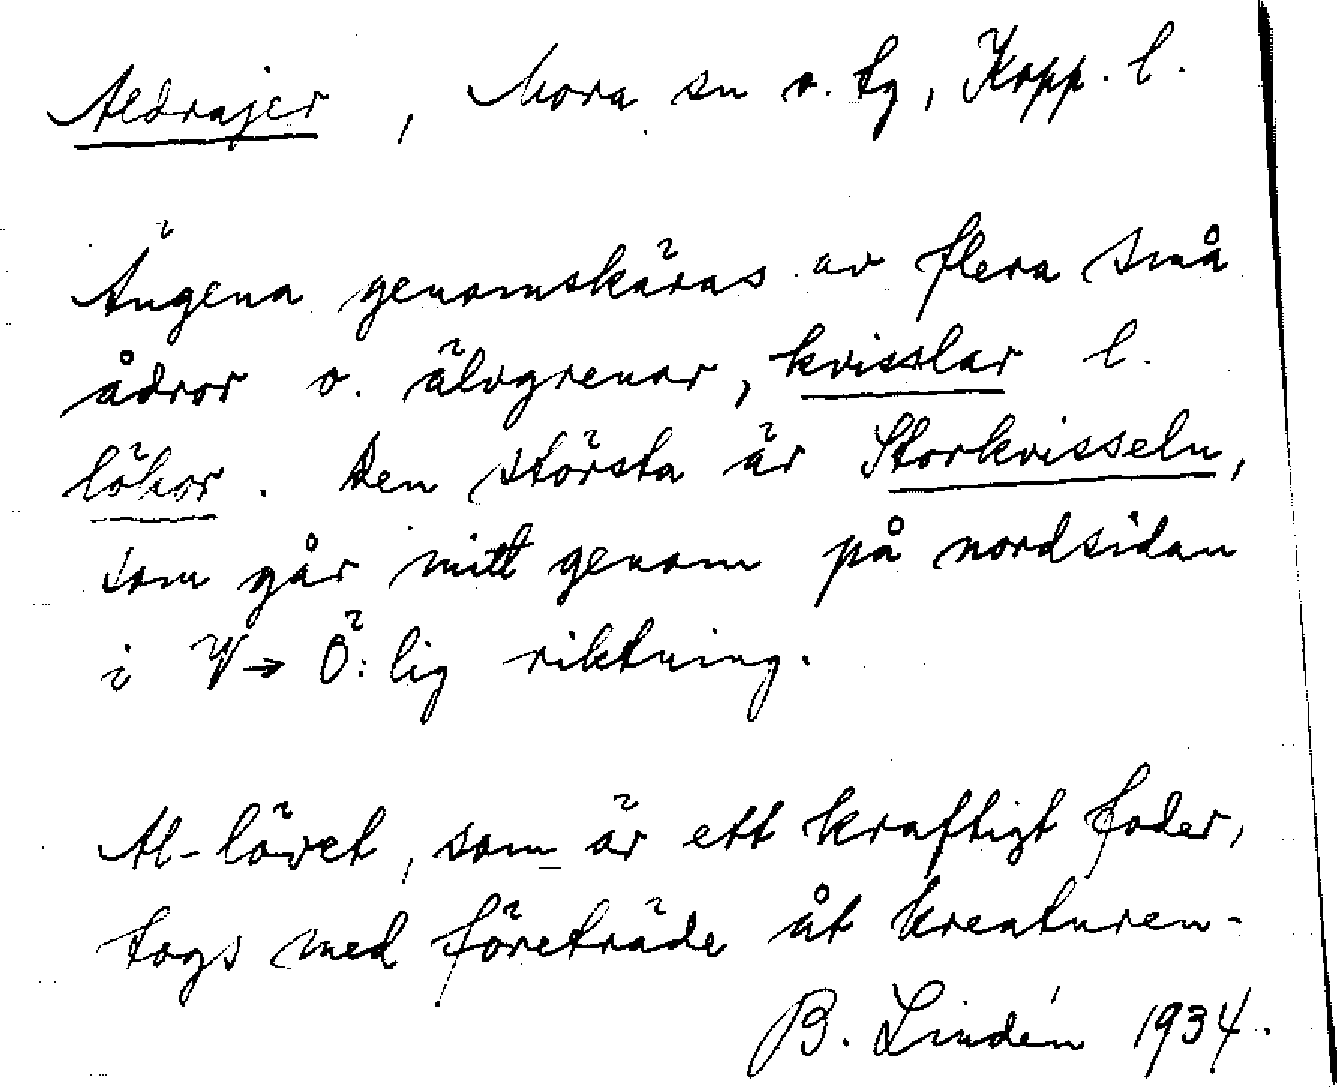 Aldrajer, Mora sn o. tg, Kopp. l.
Ängena genomskäras av flera små
ådror o. älvgrenar, kvisslar l.
lökor. Den största är Storkvisseln,
som går mitt genom på nordsidan
i V→Ö:lig riktning.
Al-lövet, som är ett kraftigt foder,
togs med företräde åt kreaturen.
B. Lindén 1934.